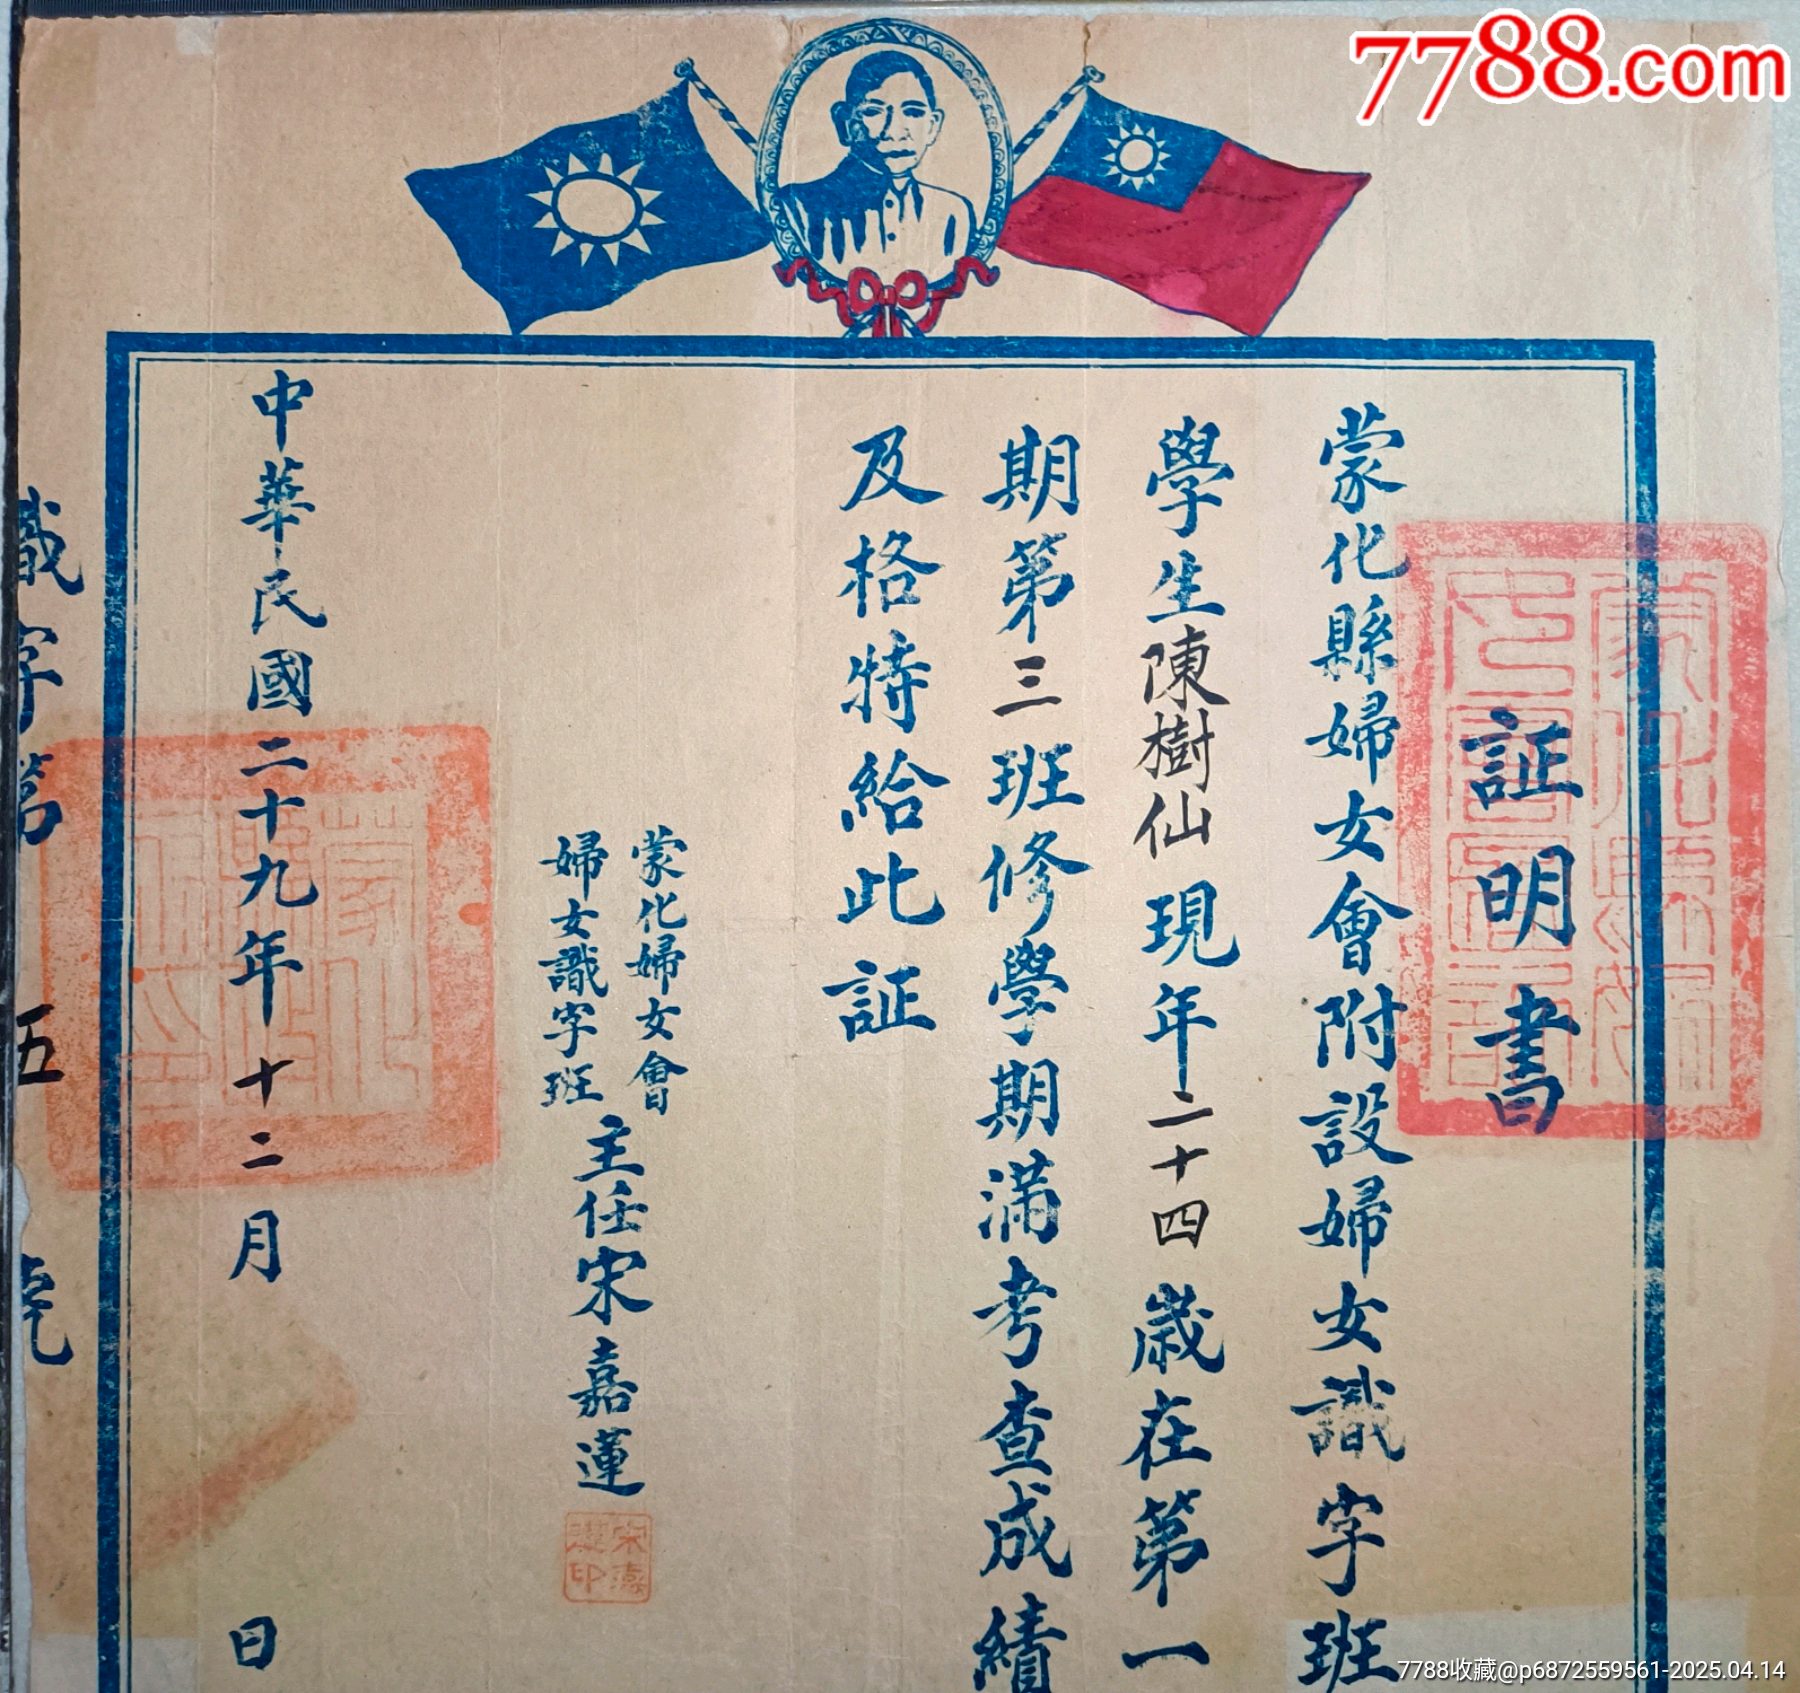 7788.com
証明書
蒙化縣婦女會附設婦女識字班
學生陳樹仙現年二十四歲在第一
期第三班修學期滿考查成績
及格特給此証
蒙化婦女會
婦女識字班
主任宋嘉蓮
宋嘉蓮印
中華民國二十九年十二月 日
識字第 五 號
7788收藏@p6872559561-2025.04.14